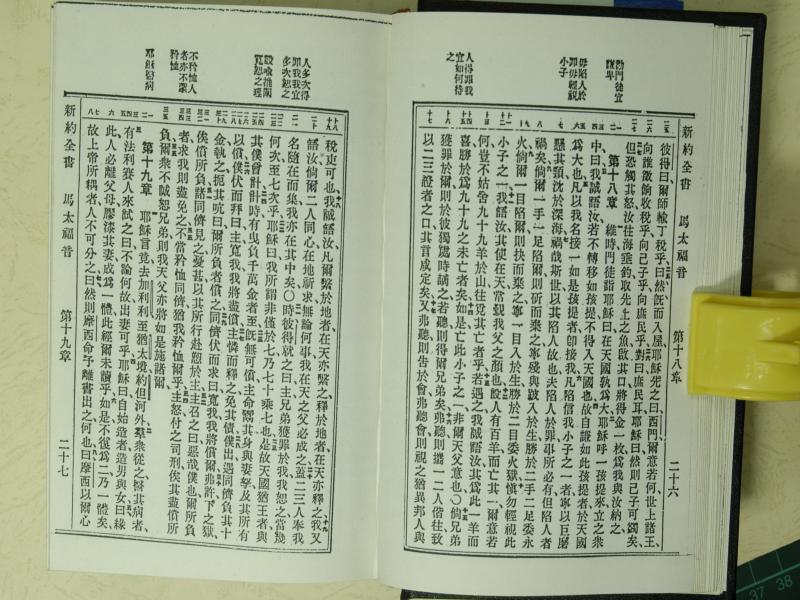 新約全書 馬太福音 第十八章 二十六
勸門徒宜謙卑
毋陷人於罪毋輕視小子
人得罪於宜如何待之
彼得曰爾師輸丁稅乎曰然旣而入屋耶穌先之曰西門爾意若何世上諸王
向誰徵餉收稅乎向己子乎向庶民乎對曰庶民耳耶穌曰然則己子可蠲矣
但恐觸其怒汝往海垂釣取先上之魚啟其口將得金一枚爲我與汝納之
第十八章 維時門徒詣耶穌曰在天國孰爲大耶穌呼一孩提來立之衆
中曰我誠語汝若不轉移如孩提不得入天國也故自謙如此孩提者於天國
爲大也凡以我名接一如是孩提者卽接我凡陷信我小子之一者寧以巨磨
懸其頸沈於深海禍哉斯世以其陷人故也夫陷人於罪事所必有但陷人者
禍矣倘爾一手一足陷爾則斫而棄之寧殘與跛入於生勝於二手二足委永
火倘爾一目陷爾則抉而棄之寧一目入於生勝於二目委火獄愼勿輕視此
小子之一我語汝其使在天常覲我父之顏也設人有百羊而亡其一爾意若
何豈不姑舍九十九羊於山往覓其亡者乎若遇之我誠語汝其爲此一羊而
喜勝於爲九十九之未亡者矣如是亡此小子之一非爾天父意也〇倘兄弟
獲罪於爾則於彼獨處時誚之若聽則得爾兄弟矣弗聽則攜一二人偕往致
以二三證者之口其言成定矣又弗聽則告於會弗聽會則視之猶異邦人與
人多次得罪我我宜多次恕之
設喻推闡寬恕之理
不矜恤人者亦不蒙矜恤
耶穌醫病
稅吏可也我誠語汝凡爾繫於地者在天亦繫之釋於地者在天亦釋之我又
語汝倘爾二人同心在地祈求無論何事我在天之父必成之蓋二三人奉我
名隨在而集我亦在其中矣〇時彼得就之曰主兄弟獲罪於我我恕之當幾
何次至七次乎耶穌曰我所謂非僅於七乃七十乘七也是故天國猶王者與
其僕會計計時有曳負千萬金者至旣無可償主命鬻其身與妻孥及其所有
以償僕伏而拜曰主寬我我將盡償主憐而釋之免其債僕出遇同儕負其十
金執之扼其吭曰爾所負者償之同儕伏而求曰寬我我將償爾弗許下之獄
俟償所負諸同儕見之憂甚以其所行赴愬於主主召之曰惡哉僕也爾所負
者求我則盡免之不當矜恤同儕猶我矜恤爾乎主怒付之司刑俟其盡償所
負爾衆不誠恕兄弟則我天父亦將如是施諸爾
第十九章 耶穌言竟去加利利至猶太境約但河外羣衆從之醫其病者
有法利賽人來試之曰不論何故出妻可乎耶穌曰自始造者造男與女曰緣
此人必離父母膠漆其妻成爲一體此經爾未讀乎如是不復爲二乃一體矣
故上帝所耦者人不可分之曰然則摩西命予離書出之何也曰摩西以爾心
新約全書 馬太福音 第十九章 二十七
37 38